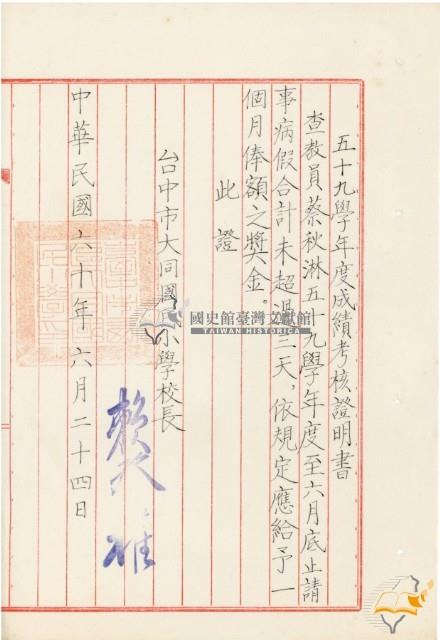 五十九學年度成績考核證明書
查教員蔡秋淋五十九學年度至六月底止請
事病假合計未超過三天，依規定應給予一
個月俸額之獎金。
此證
台中市大同國民小學校長
中華民國六十年六月二十四日
國史館臺灣文獻館
TAIWAN HISTORICA